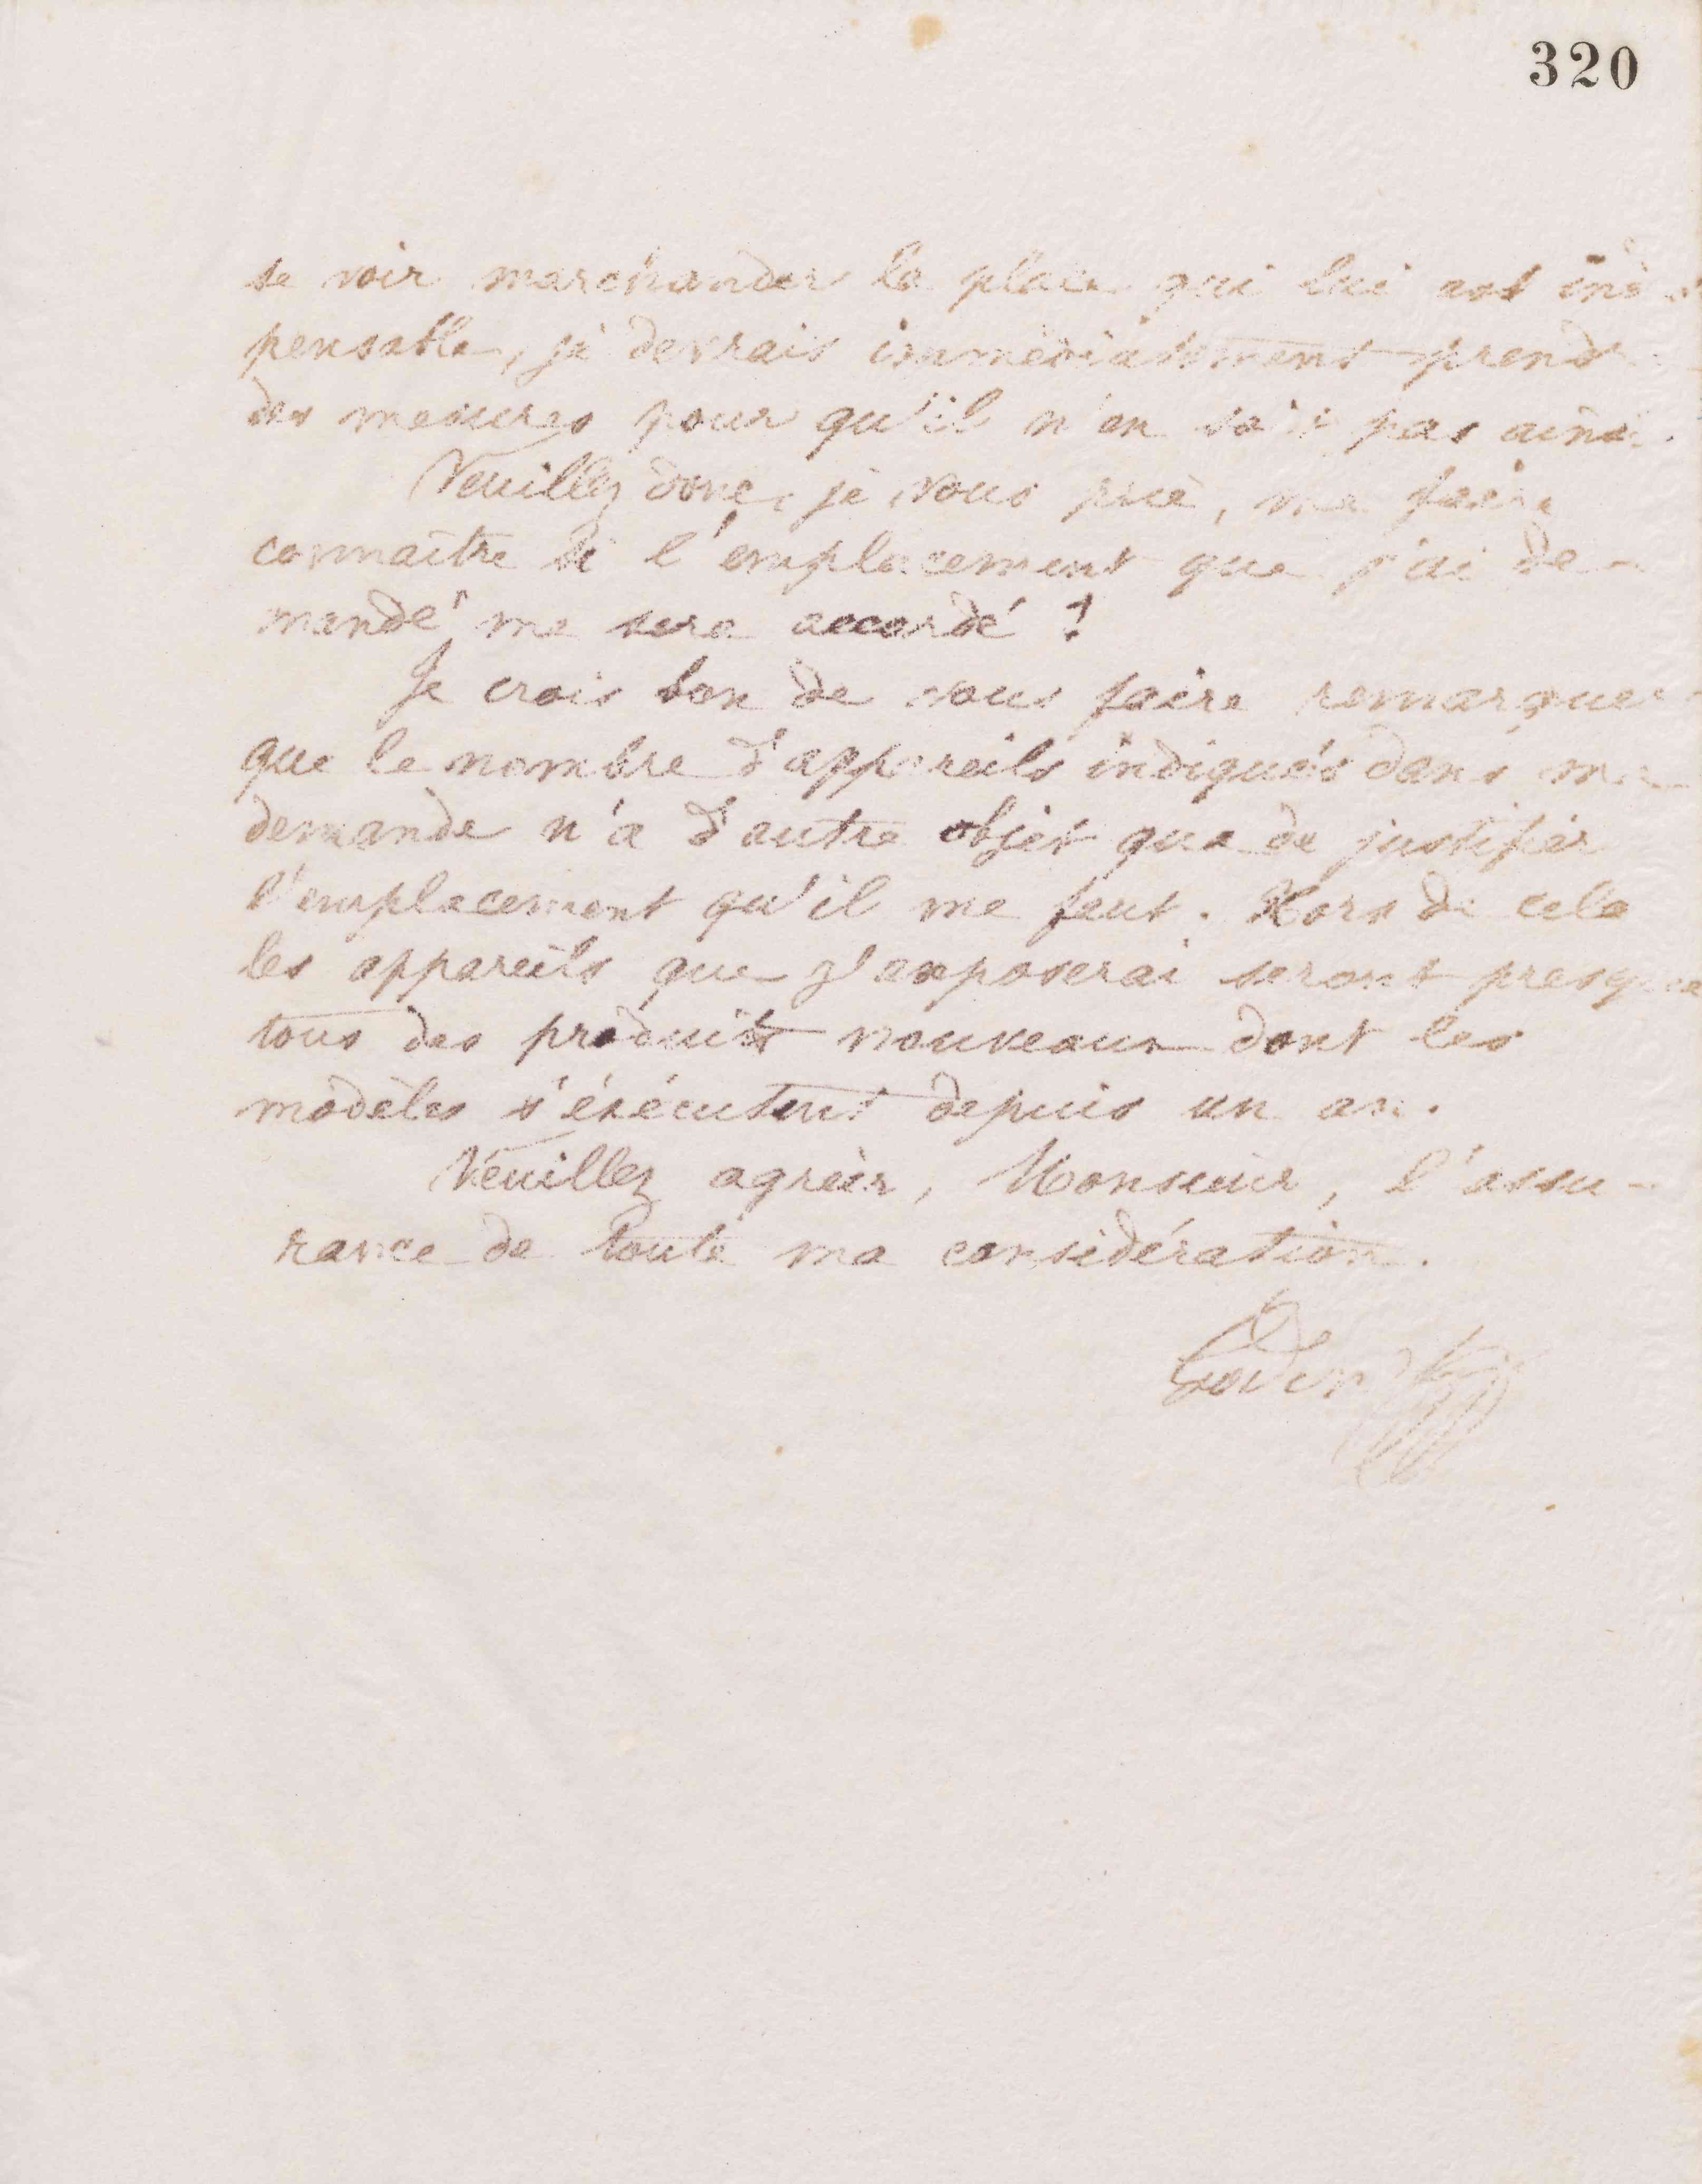 320
se voir marchander la place qui lui est indis
pensable, je devrais immédiatement prendre
des mesures pour qu'il n'en soit pas ainsi.
Veuillez donc, je vous prie, me faire
connaître si l'emplacement que j'ai de-
mandé me sera accordé ?
Je crois bon de vous faire remarquer
que le nombre d'appareils indiqués dans ma
demande n'a d'autre objet que de justifier
l'emplacement qu'il me faut. Hors de cela
les appareils que j'exposerai seront presque
tous des produits nouveaux dont les
modèles s'exécutent depuis un an.
Veuillez agréer, Monsieur, l'assu-
rance de toute ma considération.
Godin